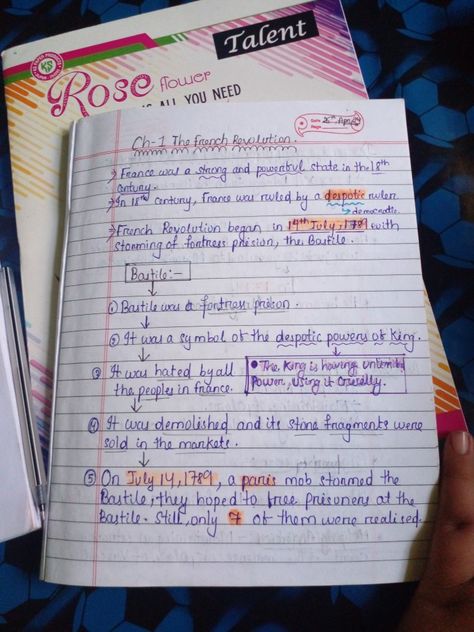 KS
Talent
Rose flower
IS ALL YOU NEED
Date
Page
Ch-1 The French Revolution.
France was a strong and powerful state in the 18th
century.
In 18th century, France was ruled by a despotic ruler
French Revolution began in 14th July, 1789 with
storming of fortress prision, the Bastile.
Bastile:-
① Bastile was a fortress prison.
② It was a symbol of the despotic powers of King.
③ It was hated by all
the peoples in france.
• The King is having unlimited
Power, using it cruelly.
④ It was demolished and its stone fragments were
sold in the markets.
⑤ On July 14, 1789, a paris mob stormed the
Bastile, they hoped to free prisoners at the
Bastile. Still, only 7 of them were realised.